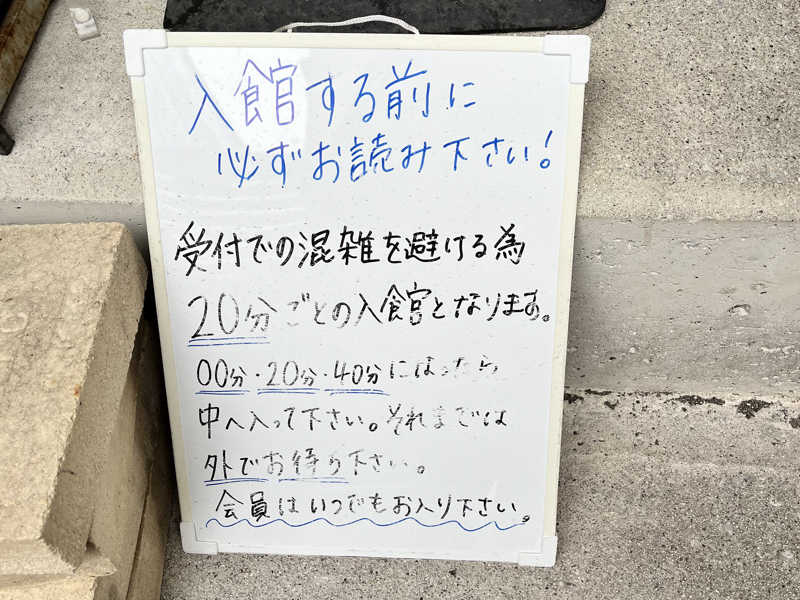 入館する前に
必ずお読み下さい!
受付での混雑を避ける為
20分ごとの入館となります。
00分・20分・40分になったら
中へ入って下さい。それまでは
外でお待ち下さい。
会員はいつでもお入り下さい。